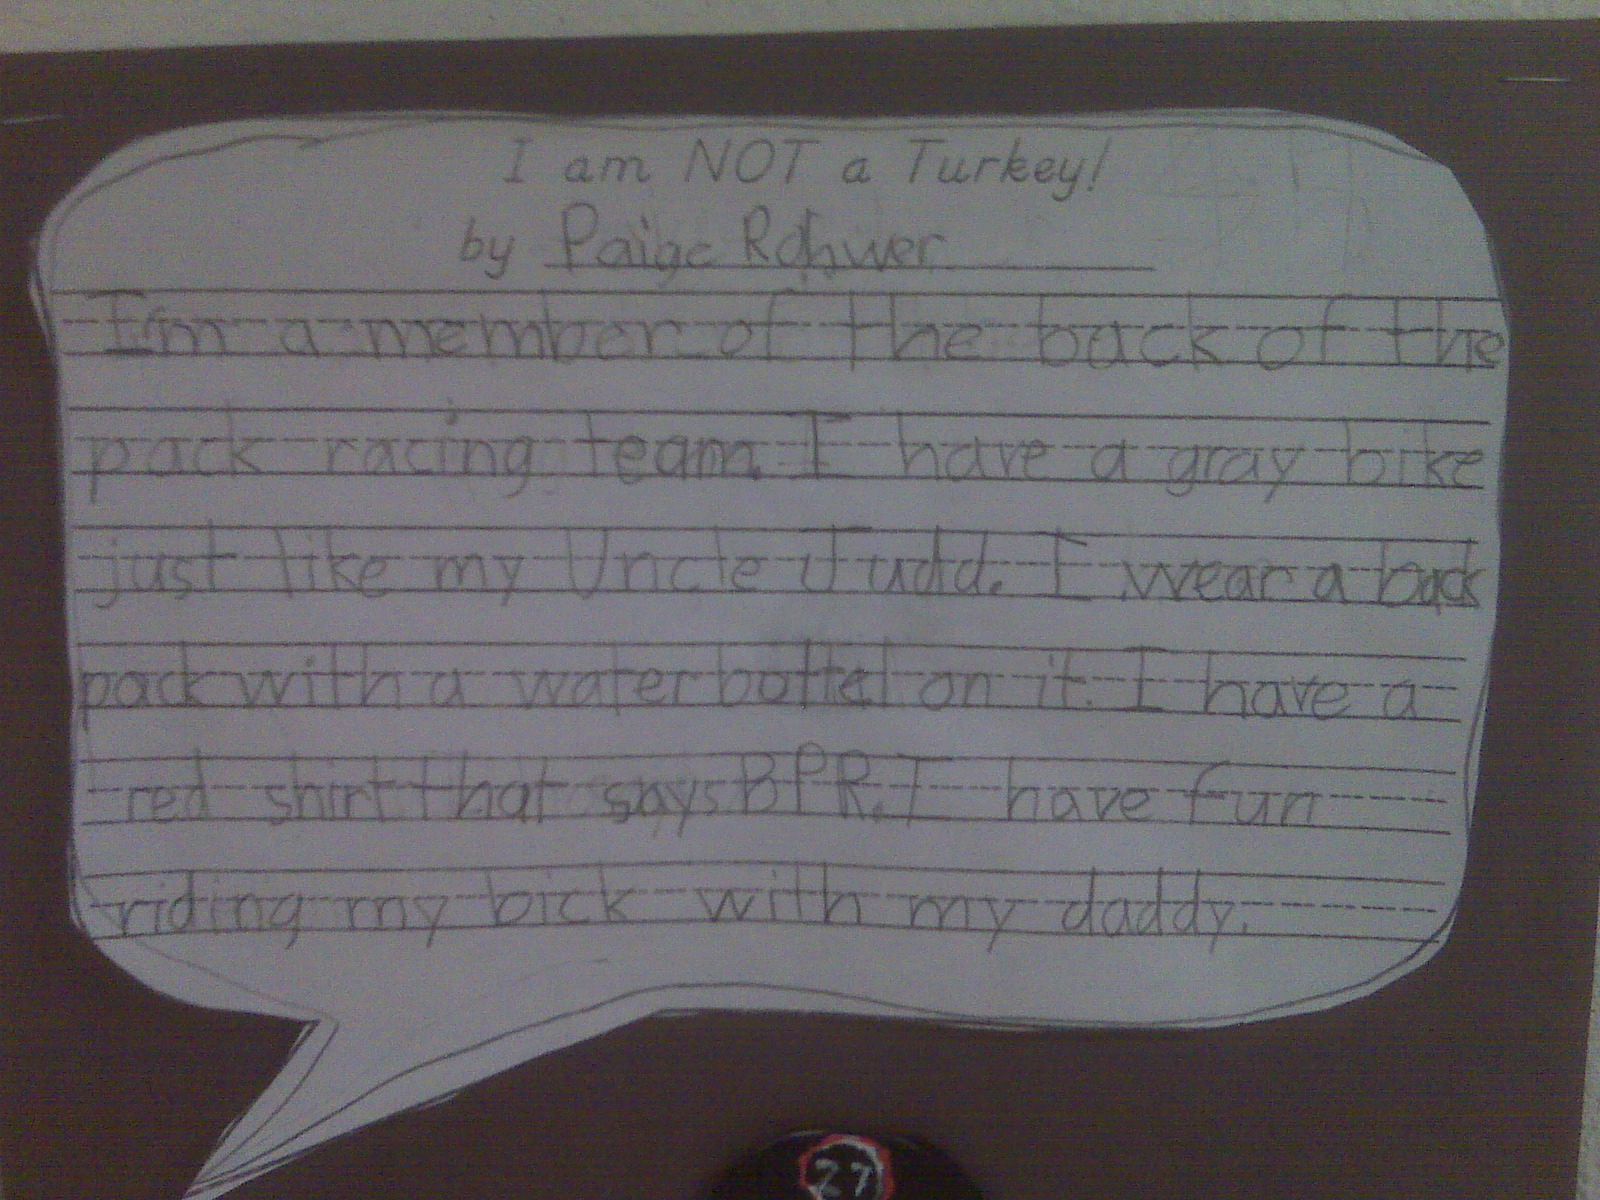 I am NOT a Turkey!
by Paige Rohwer
I'm a member of the back of the
pack racing team. I have a gray bike
just like my Uncle Judd. I wear a back
pack with a water bottel on it. I have a
red shirt that says BPR. I have fun
riding my bick with my daddy.
27